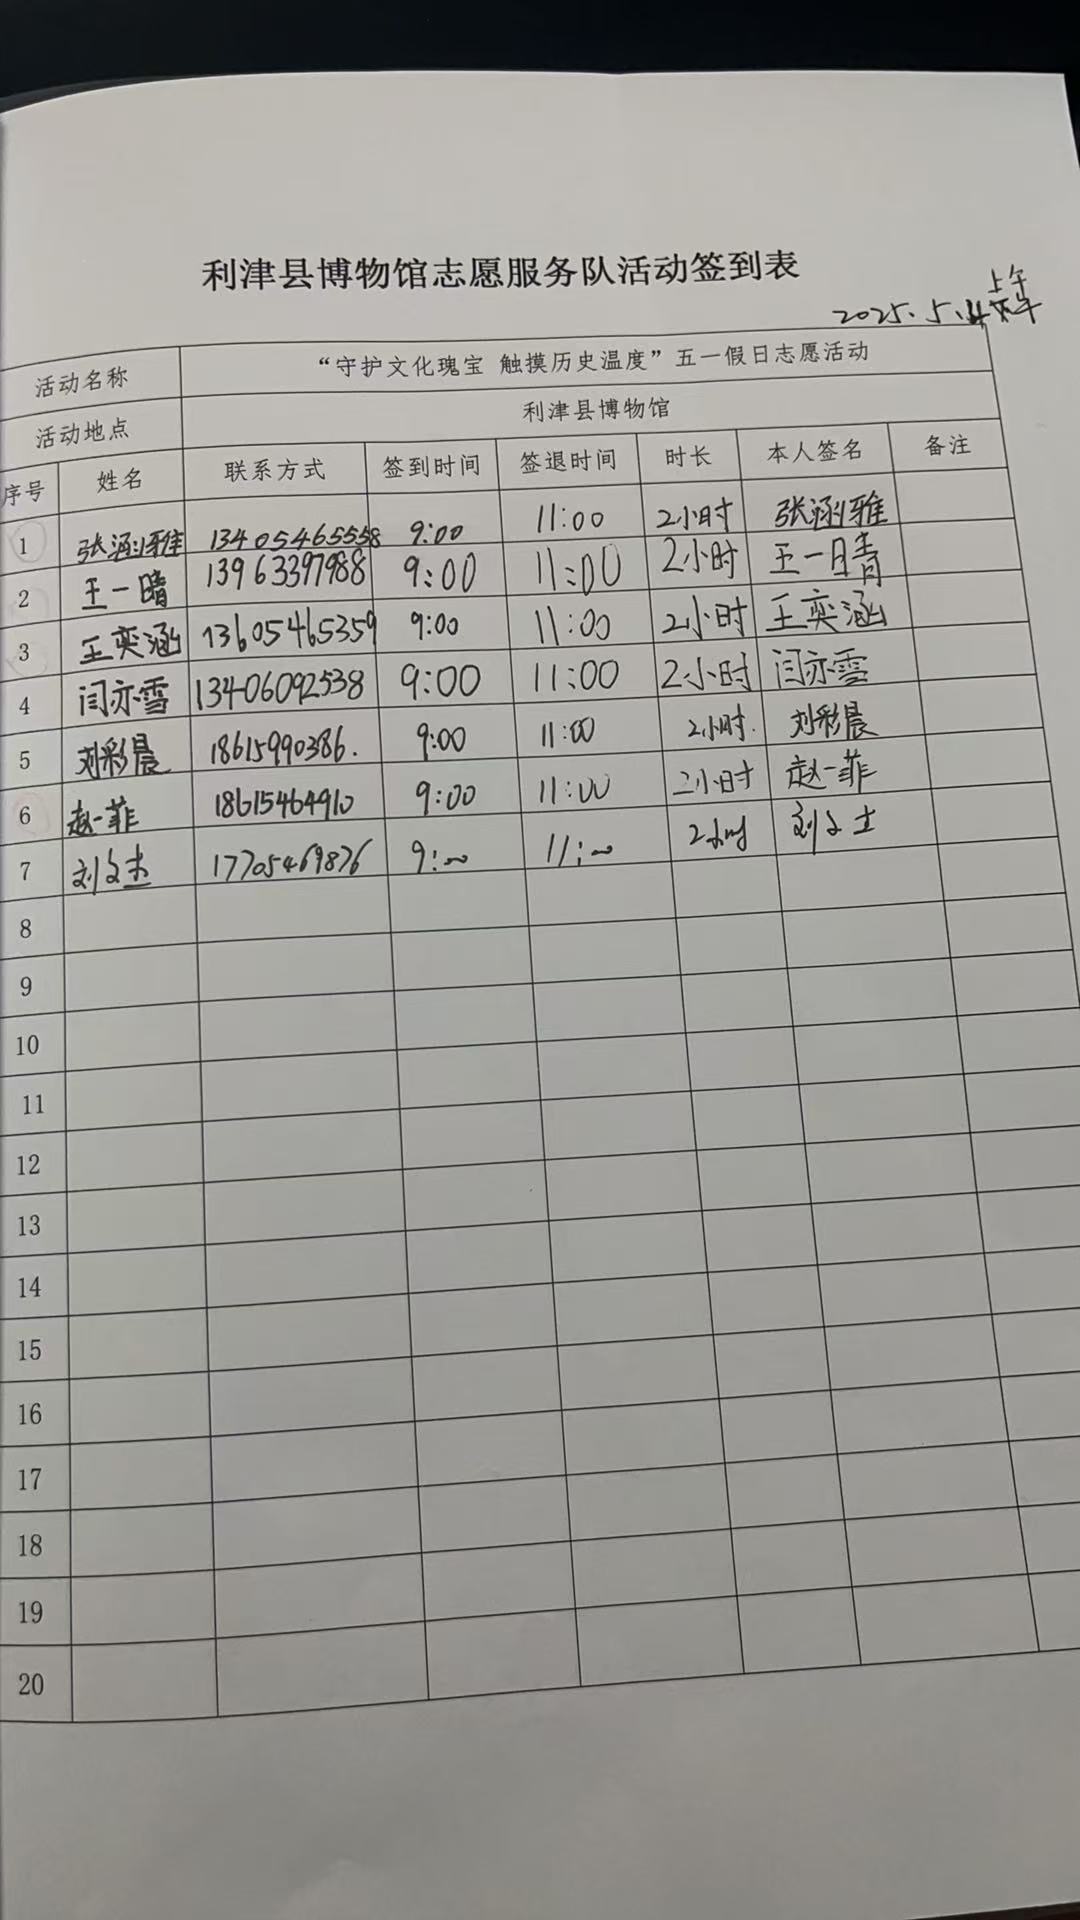 利津县博物馆志愿服务队活动签到表
上午
2025.5.4
活动名称 “守护文化瑰宝 触摸历史温度”五一假日志愿活动
活动地点 利津县博物馆
序号 姓名 联系方式 签到时间 签退时间 时长 本人签名 备注
1 张涵雅 13405465558 9:00 11:00 2小时 张涵雅
2 王一晴 13963397988 9:00 11:00 2小时 王一晴
3 王奕涵 13605465359 9:00 11:00 2小时 王奕涵
4 闫亦雪 13406092538 9:00 11:00 2小时 闫亦雪
5 刘彩晨 18615990386. 9:00 11:00 2小时. 刘彩晨
6 赵一菲 18615464910 9:00 11:00 2小时 赵一菲
7 刘文杰 17705469876 9:00 11:00 2小时 刘文杰
8
9
10
11
12
13
14
15
16
17
18
19
20